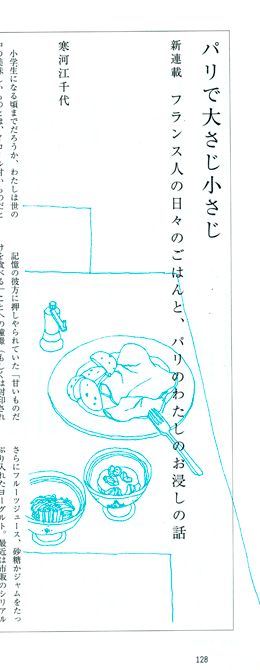 パリで大さじ小さじ
新連載　フランス人の日々のごはんと、パリのわたしのお浸しの話
寒河江千代
小学生になる頃までだろうか、わたしは世の
記憶の彼方に押しやられていた「甘いものだ
さらにフルーツジュース、砂糖かジャムをたっ
ぷり入れたヨーグルト。最近は市販のシリアル
128